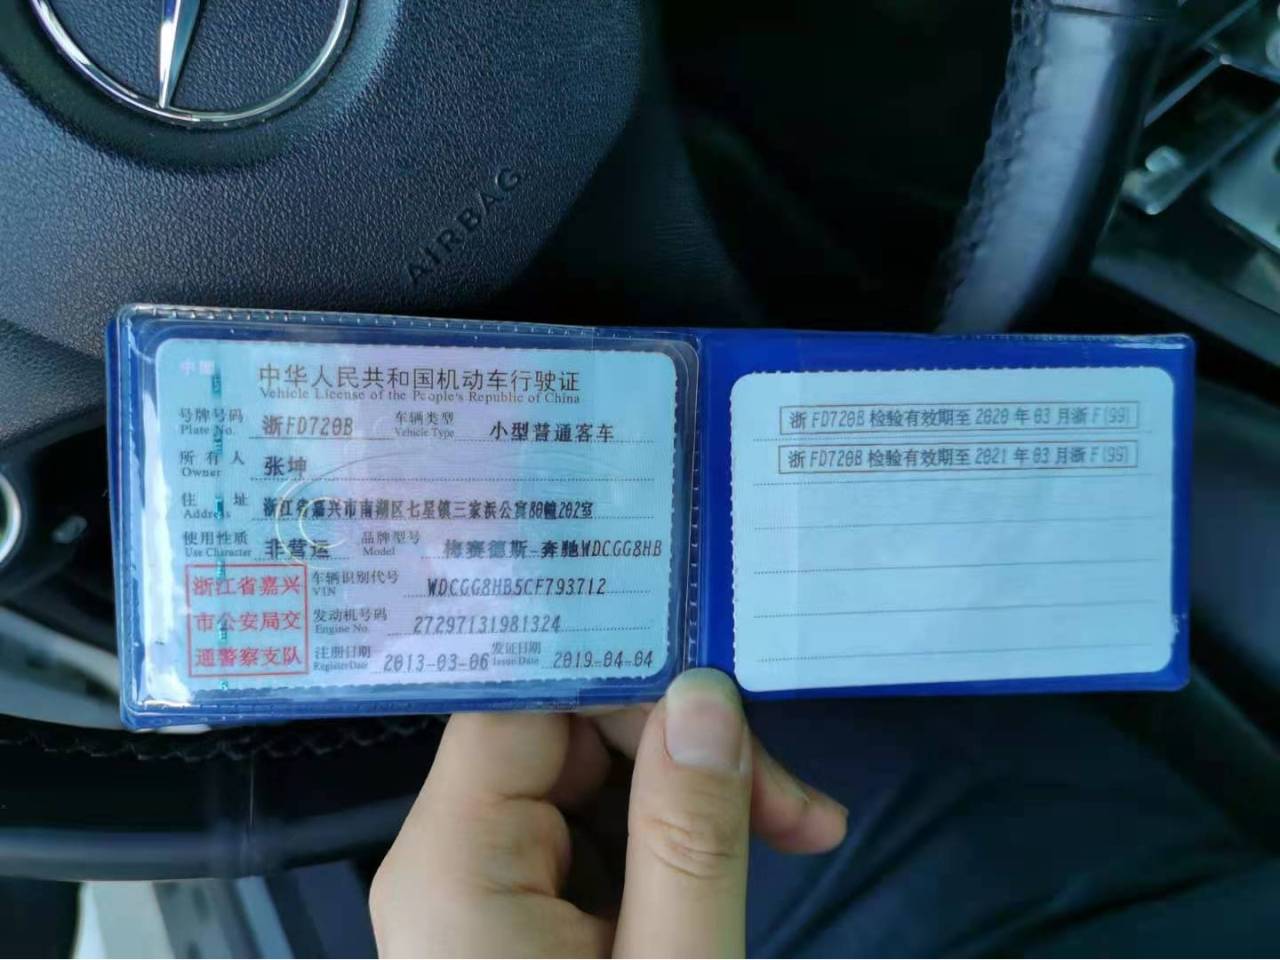 AIRBAG
中国
中华人民共和国机动车行驶证
Vehicle License of the People's Republic of China
号牌号码 浙FD720B 车辆类型 小型普通客车
Plate No. Vehicle Type
所有人 张坤
Owner
住址 浙江省嘉兴市南湖区七星镇三家浜公寓80幢202室
Address
使用性质 非营运 品牌型号 梅赛德斯-奔驰WDCGG8HB
Use Character Model
浙江省嘉兴 车辆识别代号 WDCGG8HB5CF793712
VIN
市公安局交 发动机号码 27297131981324
Engine No.
通警察支队 注册日期 2013-03-06 发证日期 2019-04-04
Register Date Issue Date
浙FD720B检验有效期至2020年03月浙F(99)
浙FD720B检验有效期至2021年03月浙F(99)